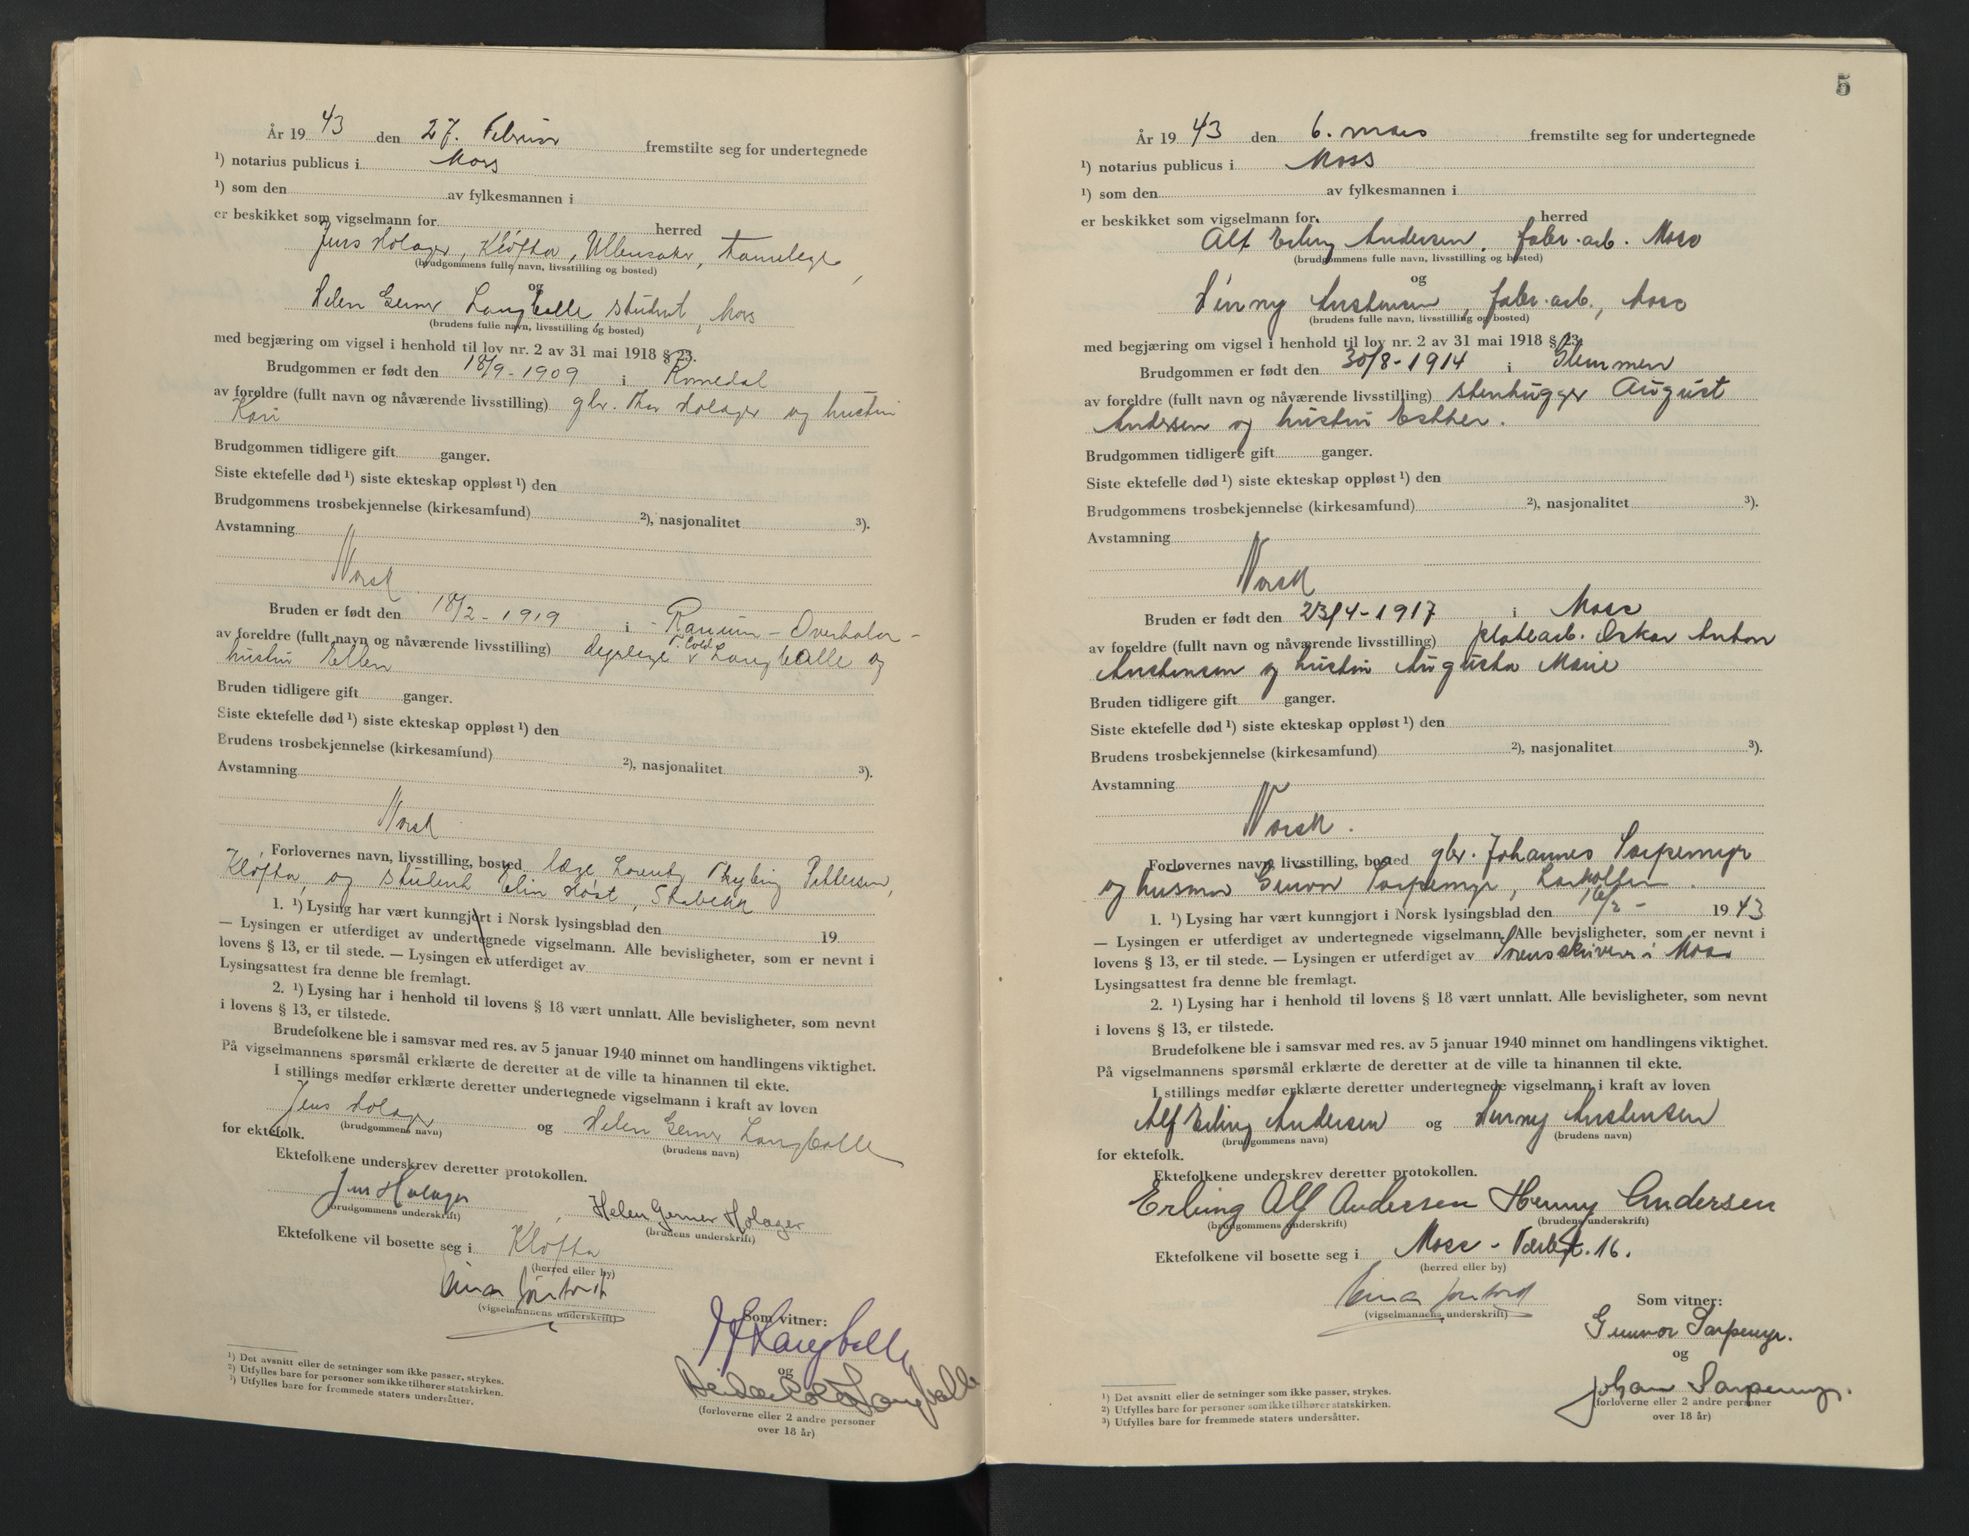 År 1943 den 27. Februar fremstilte seg for undertegnede
¹) notarius publicus i Moss
¹) som den av fylkesmannen i
er beskikket som vigselmann for herred
Jens Holager, Kløfta, Ullensaker, tannlege,
(brudgommens fulle navn, livsstilling og bosted)
og
Helen Gerner Langballe student, Moss
(brudens fulle navn, livsstilling og bosted)
med begjæring om vigsel i henhold til lov nr. 2 av 31 mai 1918 § 23.
Brudgommen er født den 18/9 - 1909 i Romedal
av foreldre (fullt navn og nåværende livsstilling) gbr. Thor Holager og hustru
Kari
Brudgommen tidligere gift ganger.
Siste ektefelle død ¹) siste ekteskap oppløst ¹) den
Brudgommens trosbekjennelse (kirkesamfund) ²), nasjonalitet ³).
Avstamning
Norsk
Bruden er født den 18/2 - 1919 i Ranum - Overhalla -
av foreldre (fullt navn og nåværende livsstilling) dyrlege Langballe og
hustru Ellen
Bruden tidligere gift ganger.
Siste ektefelle død ¹) siste ekteskap oppløst ¹) den
Brudens trosbekjennelse (kirkesamfund) ²), nasjonalitet ³).
Avstamning
Norsk
Forlovernes navn, livsstilling, bosted læge Lorentz Pettersen,
Kløfta, og student Elin Høst, Stabekk
1. ¹) Lysing har vært kunngjort i Norsk lysingsblad den 19
— Lysingen er utferdiget av undertegnede vigselmann. Alle bevisligheter, som er nevnt i
lovens § 13, er til stede. — Lysingen er utferdiget av
Lysingsattest fra denne ble fremlagt.
2. ¹) Lysing har i henhold til lovens § 18 vært unnlatt. Alle bevisligheter, som nevnt
i lovens § 13, er tilstede.
Brudefolkene ble i samsvar med res. av 5 januar 1940 minnet om handlingens viktighet.
På vigselmannens spørsmål erklærte de deretter at de ville ta hinannen til ekte.
I stillings medfør erklærte deretter undertegnede vigselmann i kraft av loven
Jens Holager og Helen Gerner Langballe
(brudgommens navn) (brudens navn)
for ektefolk.
Ektefolkene underskrev deretter protokollen.
Jens Holager Helen Gerner Holager
(brudgommens underskrift) (brudens underskrift)
Ektefolkene vil bosette seg i Kløfta
(herred eller by)
(vigselmannens underskrift)
Som vitner:
Langballe
og
Langballe
(forloverne eller 2 andre personer
over 18 år)
¹) Det avsnitt eller de setninger som ikke passer, strykes.
²) Utfylles bare for personer som ikke tilhører statskirken.
³) Utfylles bare for fremmede staters undersåtter.
5
År 1943 den 6. mars fremstilte seg for undertegnede
¹) notarius publicus i Moss
¹) som den av fylkesmannen i
er beskikket som vigselmann for herred
Alf Erling Andersen, fabr. arb. Moss
(brudgommens fulle navn, livsstilling og bosted)
og
Henny Anstensen, fabr. arb., Moss
(brudens fulle navn, livsstilling og bosted)
med begjæring om vigsel i henhold til lov nr. 2 av 31 mai 1918 § 23.
Brudgommen er født den 30/8 - 1914 i Glemmen
av foreldre (fullt navn og nåværende livsstilling) stenhugger August
Andersen og hustru Esther.
Brudgommen tidligere gift ganger.
Siste ektefelle død ¹) siste ekteskap oppløst ¹) den
Brudgommens trosbekjennelse (kirkesamfund) ²), nasjonalitet ³).
Avstamning
Norsk
Bruden er født den 23/4 - 1917 i Moss
av foreldre (fullt navn og nåværende livsstilling) platearb. Oskar Anton
Anstensen og hustru Augusta Marie
Bruden tidligere gift ganger.
Siste ektefelle død ¹) siste ekteskap oppløst ¹) den
Brudens trosbekjennelse (kirkesamfund) ²), nasjonalitet ³).
Avstamning
Norsk.
Forlovernes navn, livsstilling, bosted gbr. Johannes Sarpemyr
og husmor Gunvor Sarpemyr, Larkollen.
1. ¹) Lysing har vært kunngjort i Norsk lysingsblad den 16/2 - 1943
— Lysingen er utferdiget av undertegnede vigselmann. Alle bevisligheter, som er nevnt i
lovens § 13, er til stede. — Lysingen er utferdiget av Sorenskriveren i Moss
Lysingsattest fra denne ble fremlagt.
2. ¹) Lysing har i henhold til lovens § 18 vært unnlatt. Alle bevisligheter, som nevnt
i lovens § 13, er tilstede.
Brudefolkene ble i samsvar med res. av 5 januar 1940 minnet om handlingens viktighet.
På vigselmannens spørsmål erklærte de deretter at de ville ta hinannen til ekte.
I stillings medfør erklærte deretter undertegnede vigselmann i kraft av loven
Alf Erling Andersen og Henny Anstensen
(brudgommens navn) (brudens navn)
for ektefolk.
Ektefolkene underskrev deretter protokollen.
Erling Alf Andersen Henny Andersen
(brudgommens underskrift) (brudens underskrift)
Ektefolkene vil bosette seg i Moss - 16.
(herred eller by)
(vigselmannens underskrift)
Som vitner:
Gunvor Sarpemyr.
og
Johan Sarpemyr.
(forloverne eller 2 andre personer
over 18 år)
¹) Det avsnitt eller de setninger som ikke passer, strykes.
²) Utfylles bare for personer som ikke tilhører statskirken.
³) Utfylles bare for fremmede staters undersåtter.